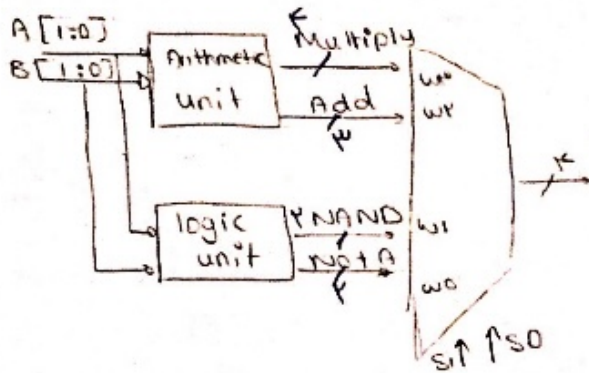 ۴
A [1:0]
B [1:0]
Arithmetic
unit
Multiply
Add
۳
w۳
w۲
۴
logic
unit
۲ NAND
Not A
۲
w۱
w0
S۱ S0